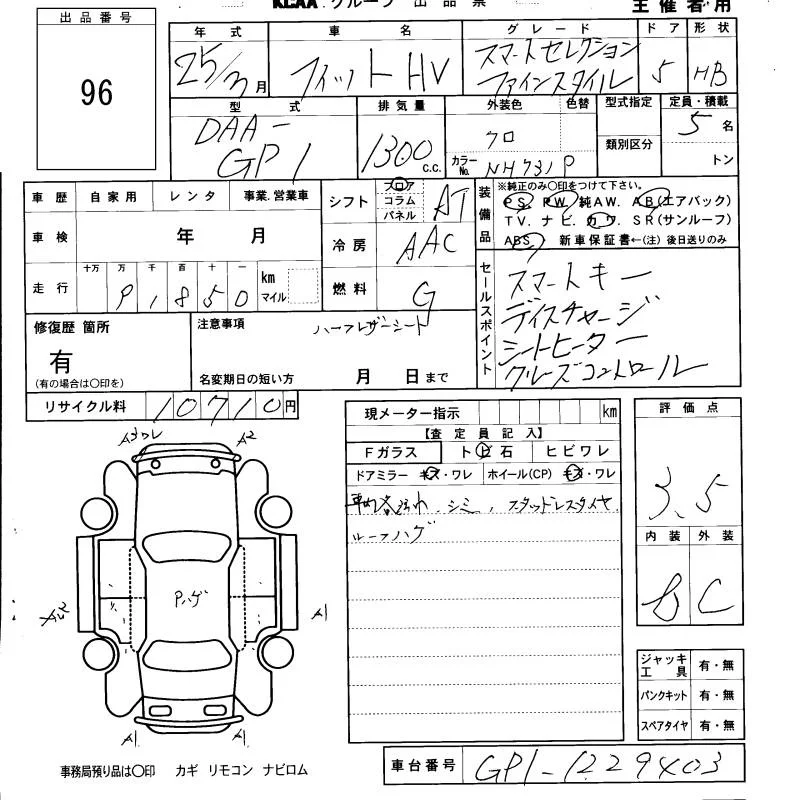 KCAA グループ 出品票 主催者用
出品番号
96
年式 車名 グレード ドア 形状
25/3月 フィット HV スマートセレクション ファインスタイル 5 HB
型式 排気量 外装色 色替 型式指定 定員・積載
DAA-GP1 1300 c.c. クロ カラーNo. NH731P 類別区分 5名
トン
車歴 自家用 レンタ 事業.営業車
車検 年 月
走行 十万 万 千 百 十 一 km マイル
9 1 8 5 0
シフト フロア コラム パネル AT
冷房 AAC
燃料 G
装備品 ※純正のみ〇印をつけて下さい。
PS PW 純AW. AB(エアバック)
TV. ナビ. カワ. SR(サンルーフ)
ABS 新車保証書←(注) 後日送りのみ
セールスポイント
スマートキー
ディスチャージ
シートヒーター
クルーズコントロール
修復歴 箇所
有
(有の場合は〇印を)
注意事項 ハーフレザーシート
名変期日の短い方 月 日まで
リサイクル料 10710円
現メーター指示 km
【査定員記入】
Fガラス ト ビ 石 ヒビワレ
ドアミラー キズ・ワレ ホイール(CP) キズ・ワレ
シミ、スタッドレスタイヤ
ルーフハゲ
評価点
3.5
内装 外装
B C
ジャッキ工具 有・無
パンクキット 有・無
スペアタイヤ 有・無
A3ワレ A2
Pハゲ
A1
A1 A1
事務局預り品は〇印 カギ リモコン ナビロム
車台番号 GP1-1229403